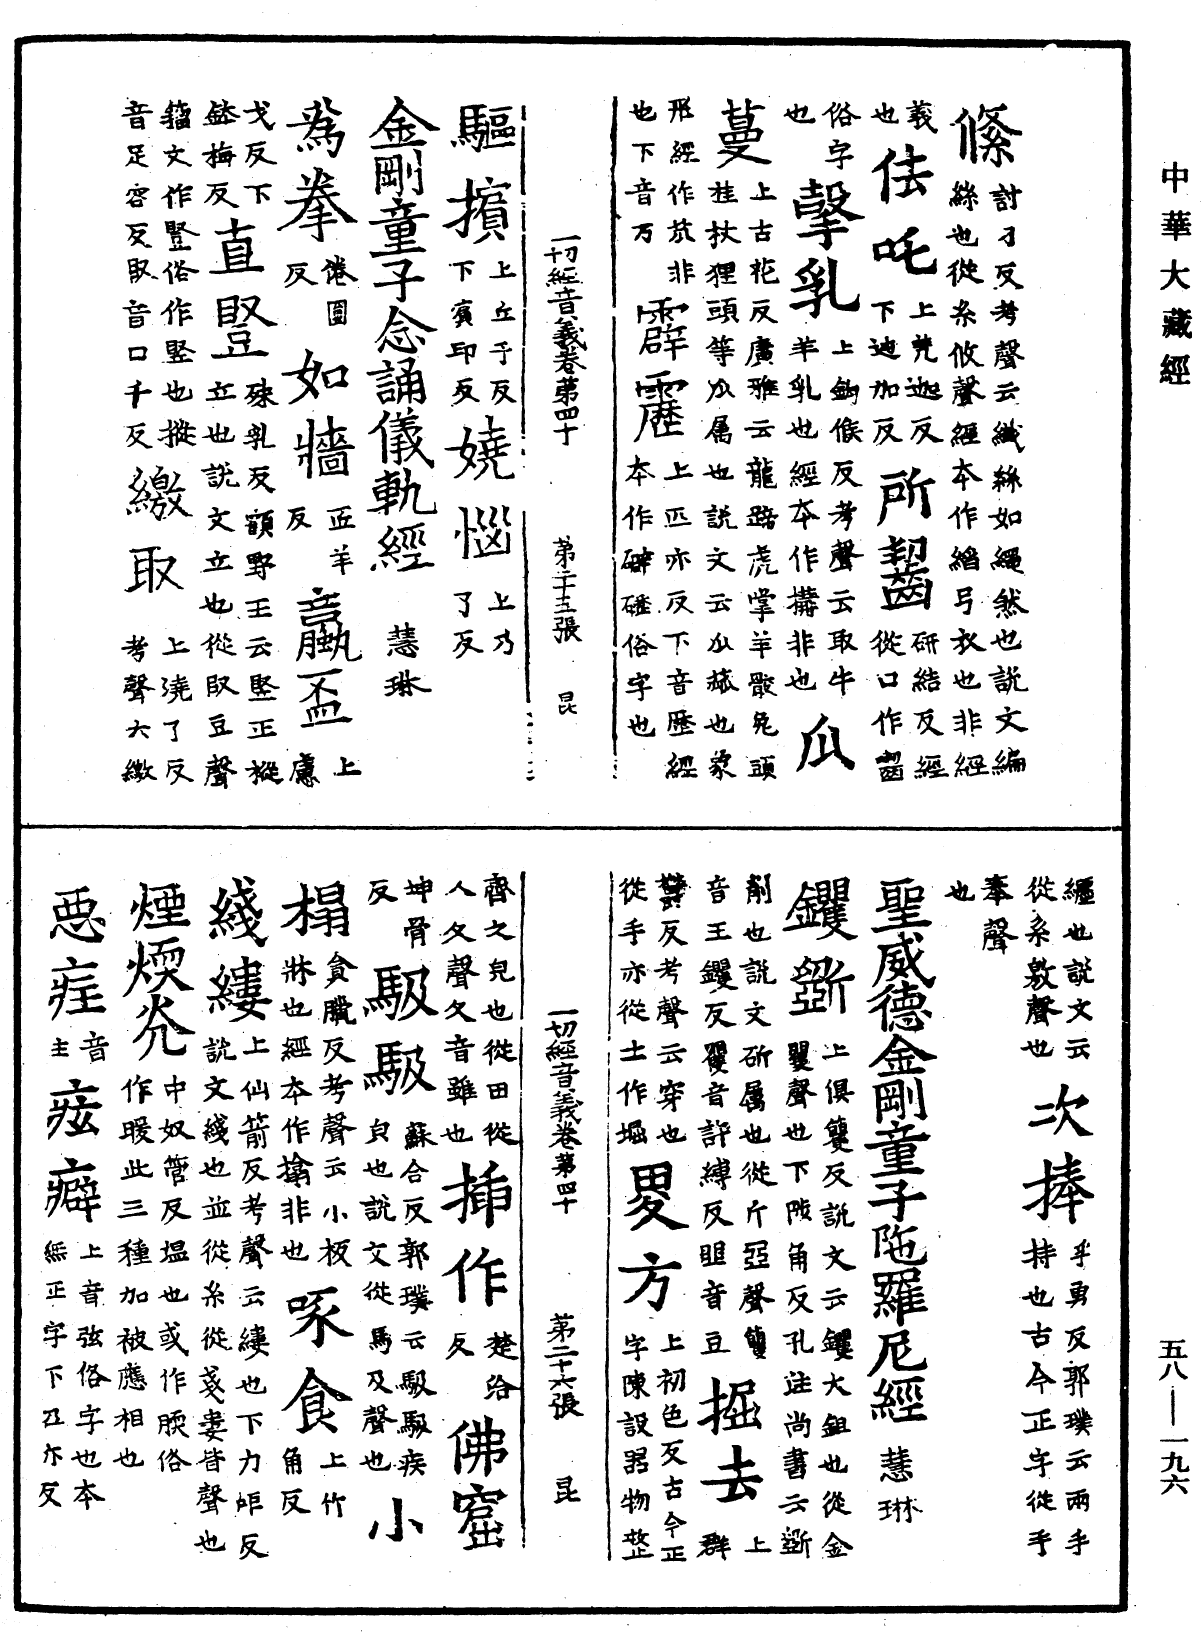 中華大藏經
絛 討刀反考聲云織絲如繩然也說文編
絲也從糸攸聲經本作縚弓衣也非經
義也 佉吒 上羌迦反下迦加反 所齧 研結反經從口作嚙
俗字也 搫乳 上鉤候反考聲云取牛羊乳也經本作搆非也 瓜
蔓 上古花反廣雅云龍蹄虎掌羊骹兔頭
桂杖狸頭等瓜屬也說文云瓜㼌也象
形經作苽非也下音万 霹靂 上匹亦反下音歷經本作礔礰俗字也
一切經音義卷第四十 第二十五張 昆
驅擯 上丘于反下賓印反 嬈惱 上乃了反
金剛童子念誦儀軌經 慧琳
為拳 倦圓反 如牆 匠羊反 蠃盃 上盧
戈反下盋梅反 直竪 殊乳反顧野王云竪正摐
立也說文立也從臤豆聲
籀文作豎俗作竪也摐
音足容反臤音口千反 繳取 上澆了反考聲六繳
纏也說文云從糸敫聲也 次捧 乎勇反郭璞云兩手持也古今正字從手
奉聲也
聖威德金剛童子陁羅尼經 慧琳
钁斵 上俱籰反說文云钁大鉏也從金
矍聲也下陟角反孔注尚書云斵
削也說文斫属也從斤㔁聲籰
音王钁反矍音許縛反㔁音豆 掘去 上群
欝反考聲云穿也從手亦從土作堀 畟方 上初色反古今正字陳設器物整
齊之皃也從田從人夊聲夊音雖也 插作 楚洽反 佛窟
坤骨反 馺馺 蘇合反郭璞云馺馺疾皃也說文從馬及聲也 小
榻 貪臘反考聲云小板牀也經本作搨非也 啄食 上竹角反
綫縷 上仙箭反考聲云縷也下力矩反
說文綫也並從糸從戔婁皆聲也
煙煗炗 中奴管反塭也或作㬉俗作暖此三種加被應相也
惡疰 音主 痃癖 上音弦俗字也本無正字下㔻亦反
一切經音義卷第四十 第二十六張 昆
五八—一九六